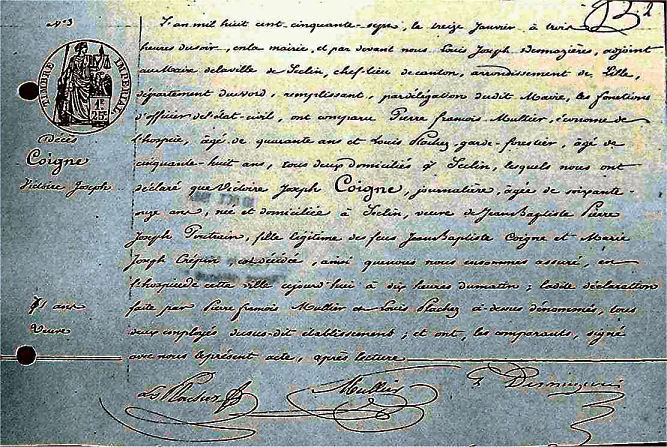 N° 3
TIMBRE IMPÉRIAL
1 F
25 C
Décès
Coigne
Victoire Joseph
71 ans
Veuve
L'an mil huit cent cinquante-sept, le treize Janvier à trois
heures du soir, en la mairie, et par devant nous Louis Joseph Desmazières, adjoint
au Maire de la ville de Seclin, chef-lieu de canton, arrondissement de Lille,
département du Nord, remplissant, par délégation dudit Maire, les fonctions
d'officier de l'état-civil, ont comparu Pierre François Mullier, économe de
l'hospice, âgé de quarante ans et Louis Plachez, garde-forestier, âgé de
cinquante-huit ans, tous deux domiciliés à Seclin, lesquels nous ont
déclaré que Victoire Joseph Coigne, journalière, âgée de soixante-
onze ans, née et domiciliée à Seclin, veuve de Jean Baptiste Pierre
Joseph, fille légitime des feus Jean Baptiste Coigne et Marie
Joseph Crépin est décédée, ainsi que nous nous en sommes assuré, en
l'hospice de cette ville cejourd'hui à dix heures du matin; ladite déclaration
faite par Pierre François Mullier et Louis Plachez ci-dessus dénommés, tous
deux employés du sus-dit établissement; et ont, les comparants, signé
avec nous le présent acte, après lecture.
Ls Plachez
Mullier